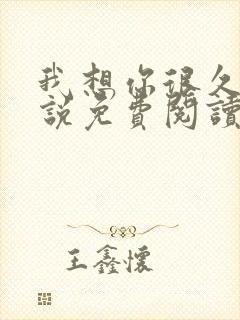 我想你很久
說免費閱讀
王鑫懷